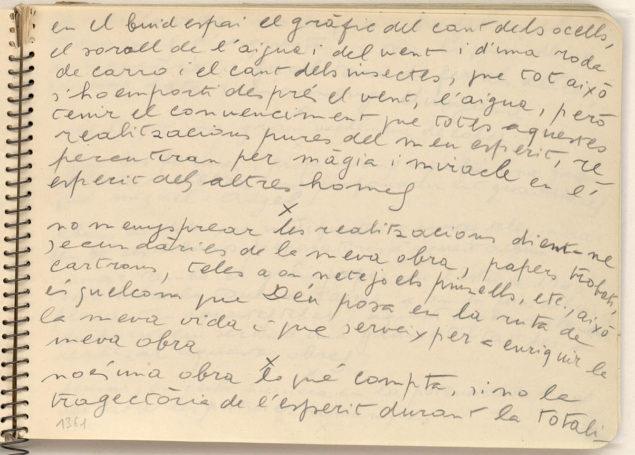 en el buid espai el gràfic del cant dels ocells,
el soroll de l'aigua i del vent i d'una roda
de carro i el cant dels insectes, que tot això
s'ho emporti després el vent, l'aigua, però
tenir el convenciment que totes aquestes
realitzacions pures del meu esperit, re
percutiran per màgia i miracle en l'
esperit dels altres homes
x
no menysprear les realitzacions diem-ne
secundàries de la meva obra, papers trobats,
cartrons, teles a on netejo els pinzells, etc., això
és quelcom que Déu posa en la ruta de
la meva vida i que serveix per a enriquir la
meva obra
x
no és una obra lo què compta, sino la
tragectòria de l'esperit durant la totali-
1361